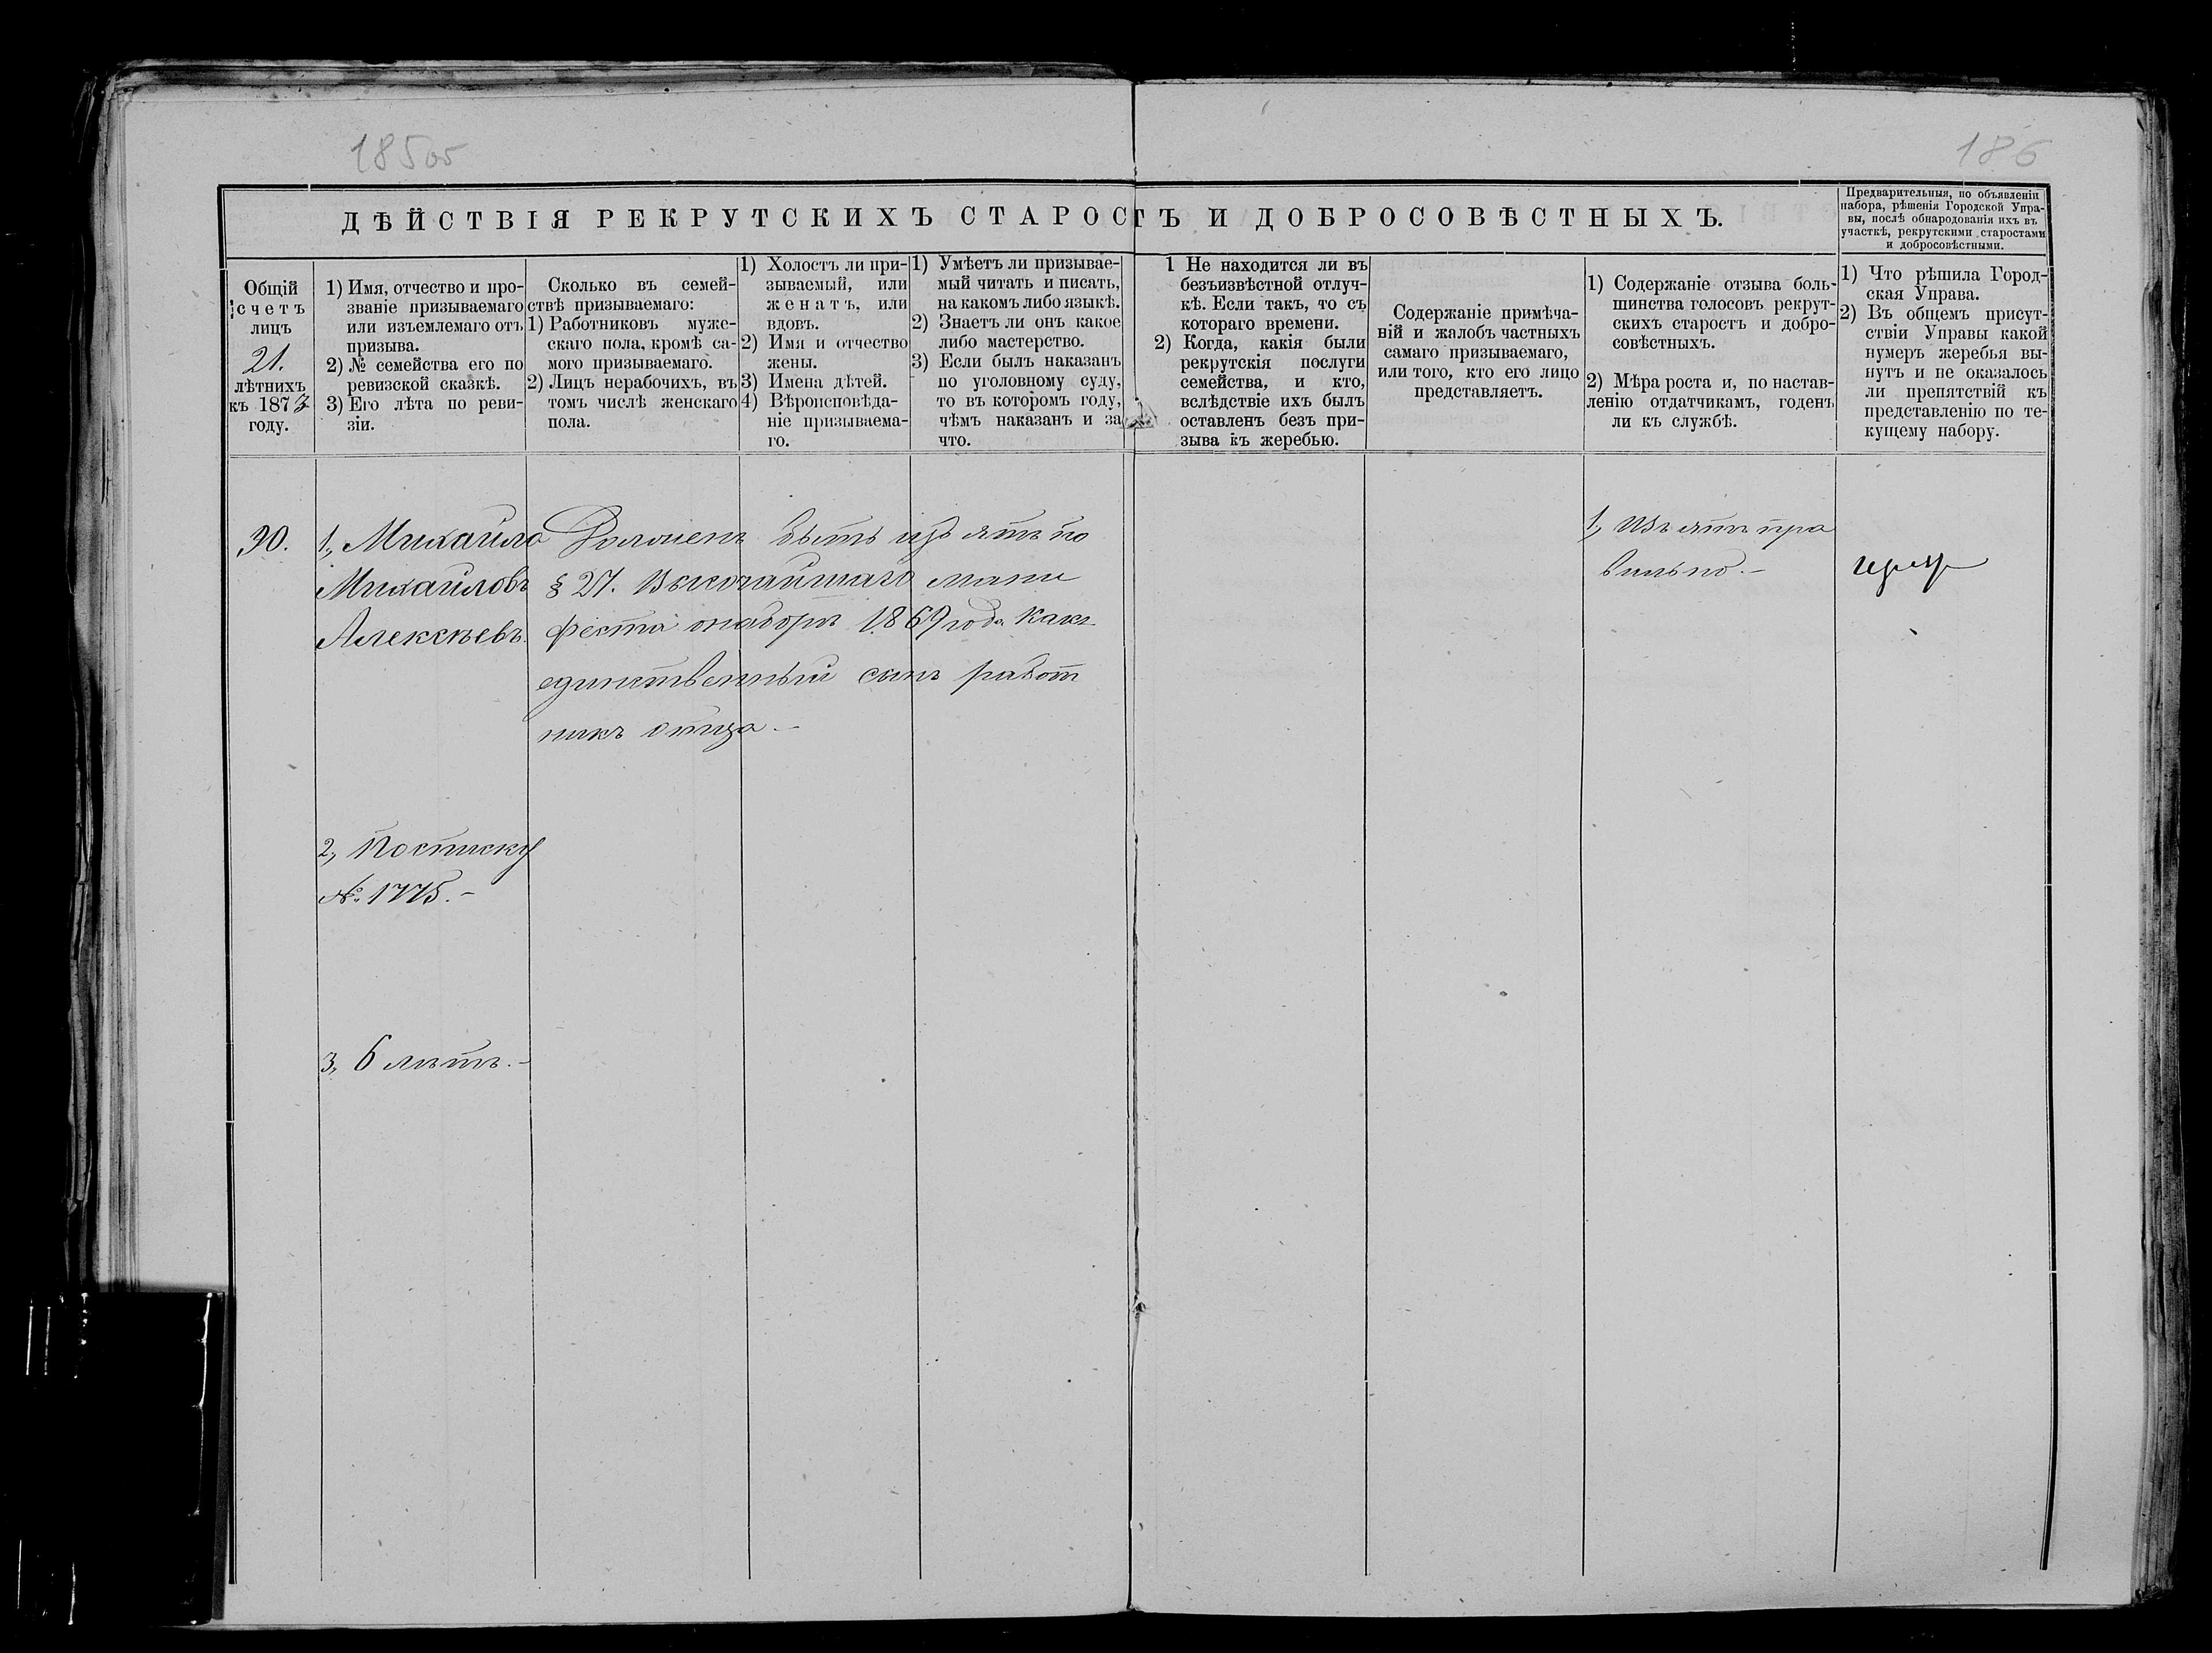 185об
186
ДѢЙСТВІЯ РЕКРУТСКИХЪ СТАРОСТЪ И ДОБРОСОВѢСТНЫХЪ.
Предварительныя, по объявленіи
набора, рѣшенія Городской Упра-
вы, послѣ обнародованія ихъ въ
участкѣ, рекрутскими старостами
и добросовѣстными.
Общій
счетъ
лицъ
21.
лѣтнихъ
къ 1873
году.
1) Имя, отчество и про-
званіе призываемаго
или изъемлемаго отъ
призыва.
2) № семейства его по
ревизской сказкѣ.
3) Его лѣта по реви-
зіи.
Сколько въ семей-
ствѣ призываемаго:
1) Работниковъ муже-
скаго пола, кромѣ са-
мого призываемаго.
2) Лицъ нерабочихъ, въ
томъ числѣ женскаго
пола.
1) Холостъ ли при-
зываемый, или
женатъ, или
вдовъ.
2) Имя и отчество
жены.
3) Имена дѣтей.
4) Вѣроисповѣда-
ніе призываема-
го.
1) Умѣетъ ли призывае-
мый читать и писать,
на какомъ либо языкѣ.
2) Знаетъ ли онъ какое
либо мастерство.
3) Если былъ наказанъ
по уголовному суду,
то въ которомъ году,
чѣмъ наказанъ и за
что.
1 Не находится ли въ
безъизвѣстной отлуч-
кѣ. Если такъ, то съ
котораго времени.
2) Когда, какія были
рекрутскія послуги
семейства, и кто,
вслѣдствіе ихъ былъ
оставленъ безъ при-
зыва къ жеребью.
Содержаніе примѣча-
ній и жалобъ частныхъ
самаго призываемаго,
или того, кто его лицо
представляетъ.
1) Содержаніе отзыва боль-
шинства голосовъ рекрут-
скихъ старостъ и добро-
совѣстныхъ.
2) Мѣра роста и, по настав-
ленію отдатчикамъ, годенъ
ли къ службѣ.
1) Что рѣшила Город-
ская Управа.
2) Въ общемъ присут-
ствіи Управы какой
нумеръ жеребья вы-
нутъ и не оказалось
ли препятствій къ
представленію по те-
кущему набору.
30.
1, Михаило
Михаиловъ
Алексѣевъ.
Долженъ быть изъятъ по
§ 27. Высочайшаго мани
феста о наборѣ 1869 года какъ
единственный сынъ работ
никъ отца.-
2, По списку
№ 1775.-
3, 6 лѣтъ.-
1, Изъятъ пра
вильно.-